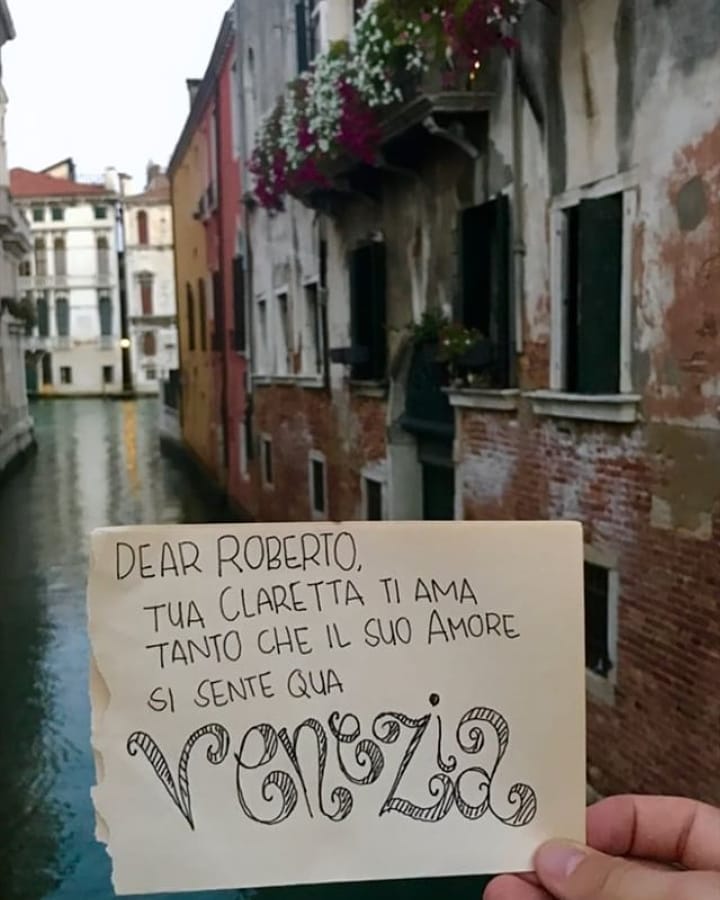 DEAR ROBERTO,
TUA CLARETTA TI AMA
TANTO CHE IL SUO AMORE
SI SENTE QUA
Venezia